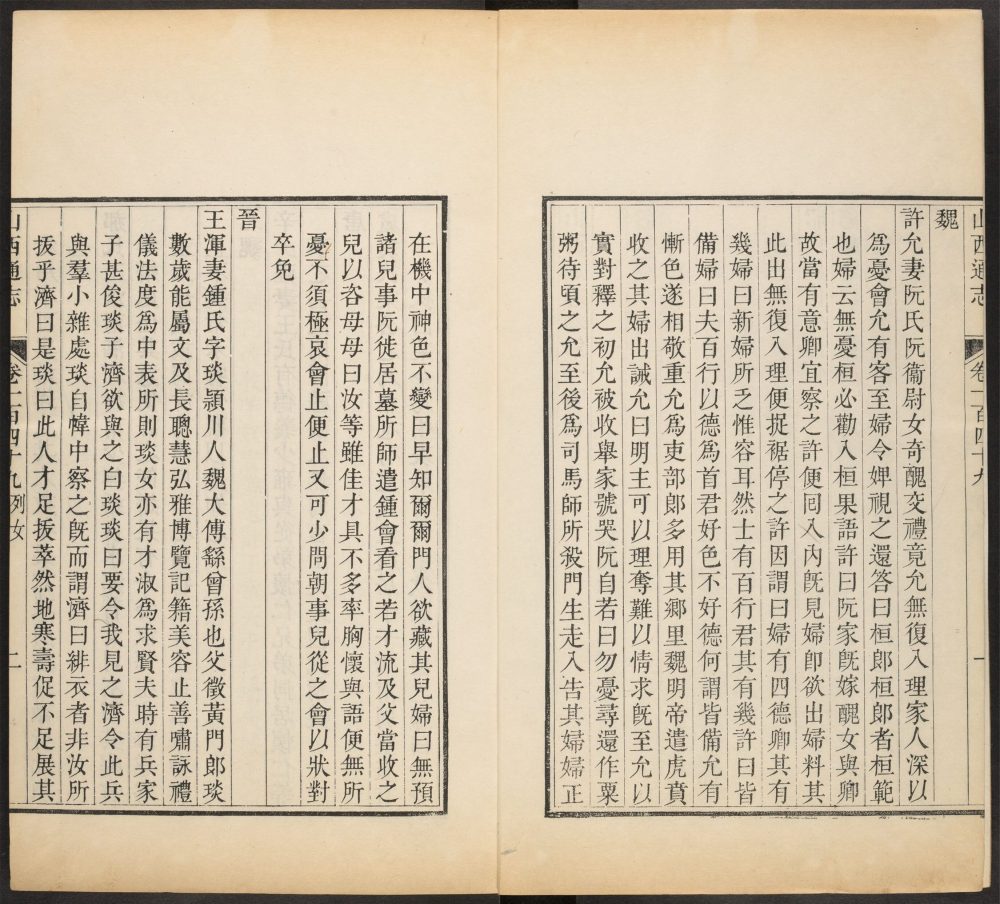 山西通志 卷一百四十九 一
魏
許允妻阮氏阮衞尉女奇醜交禮竟允無復入理家人深以
爲憂會允有客至婦令婢視之還答曰桓郎桓郎者桓範
也婦云無憂桓必勸入桓果語許曰阮家旣嫁醜女與卿
故當有意卿宜察之許便囘入內旣見婦卽欲出婦料其
此出無復入理便捉裾停之許因謂曰婦有四德卿其有
幾婦曰新婦所乏惟容耳然士有百行君其有幾許曰皆
備婦曰夫百行以德爲首君好色不好德何謂皆備允有
慚色遂相敬重允爲吏部郎多用其鄉里魏明帝遣虎賁
收之其婦出誡允曰明主可以理奪難以情求旣至允以
實對釋之初允被收舉家號哭阮自若曰勿憂尋還作粟
粥待頃之允至後爲司馬師所殺門生走入告其婦婦正
在機中神色不變曰早知爾爾門人欲藏其兒婦曰無預
諸兒事阮徙居墓所師遣鍾會看之若才流及父當收之
兒以咨母母曰汝等雖佳才具不多率胸懷與語便無所
憂不須極哀會止便止又可少問朝事兒從之會以狀對
卒免
晉
王渾妻鍾氏字琰潁川人魏大傅繇曾孫也父徵黃門郎琰
數歲能屬文及長聰慧弘雅博覽記籍美容止善嘯詠禮
儀法度爲中表所則琰女亦有才淑爲求賢夫時有兵家
子甚俊琰子濟欲與之白琰琰曰要令我見之濟令此兵
與羣小雜處琰自幃中察之旣而謂濟曰緋衣者非汝所
拔乎濟曰是琰曰此人才足拔萃然地寒壽促不足展其
山西通志 卷一百四十九列女 二